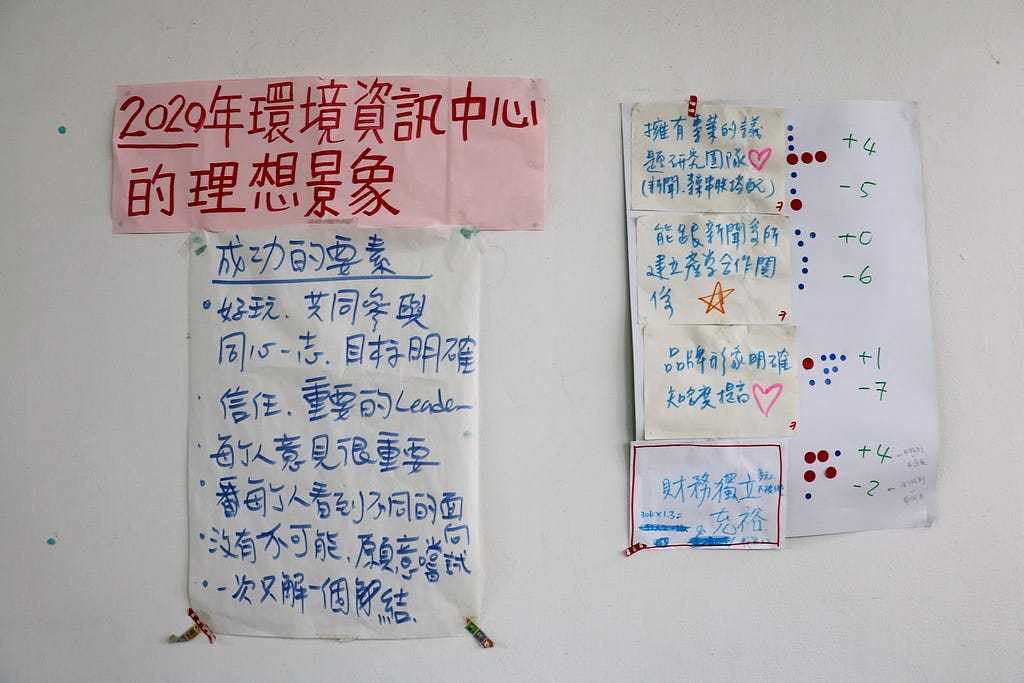 2020年環境資訊中心
的理想景象
成功的要素
• 好玩、共同參與
同心一志、目標明確
• 信任、重要的Leader
• 每個人意見很重要
• 看每個人看到不同的面向
• 沒有不可能，願意嚐試
• 一次只解一個結
擁有專業的議
題研究團隊
(新聞、
能跟新聞系所
建立產學合作關
係
品牌形象明確
知名度提高
財務獨立
30K×1.3=
充裕
+4
-5
+0
-6
+1
-7
+4
-2